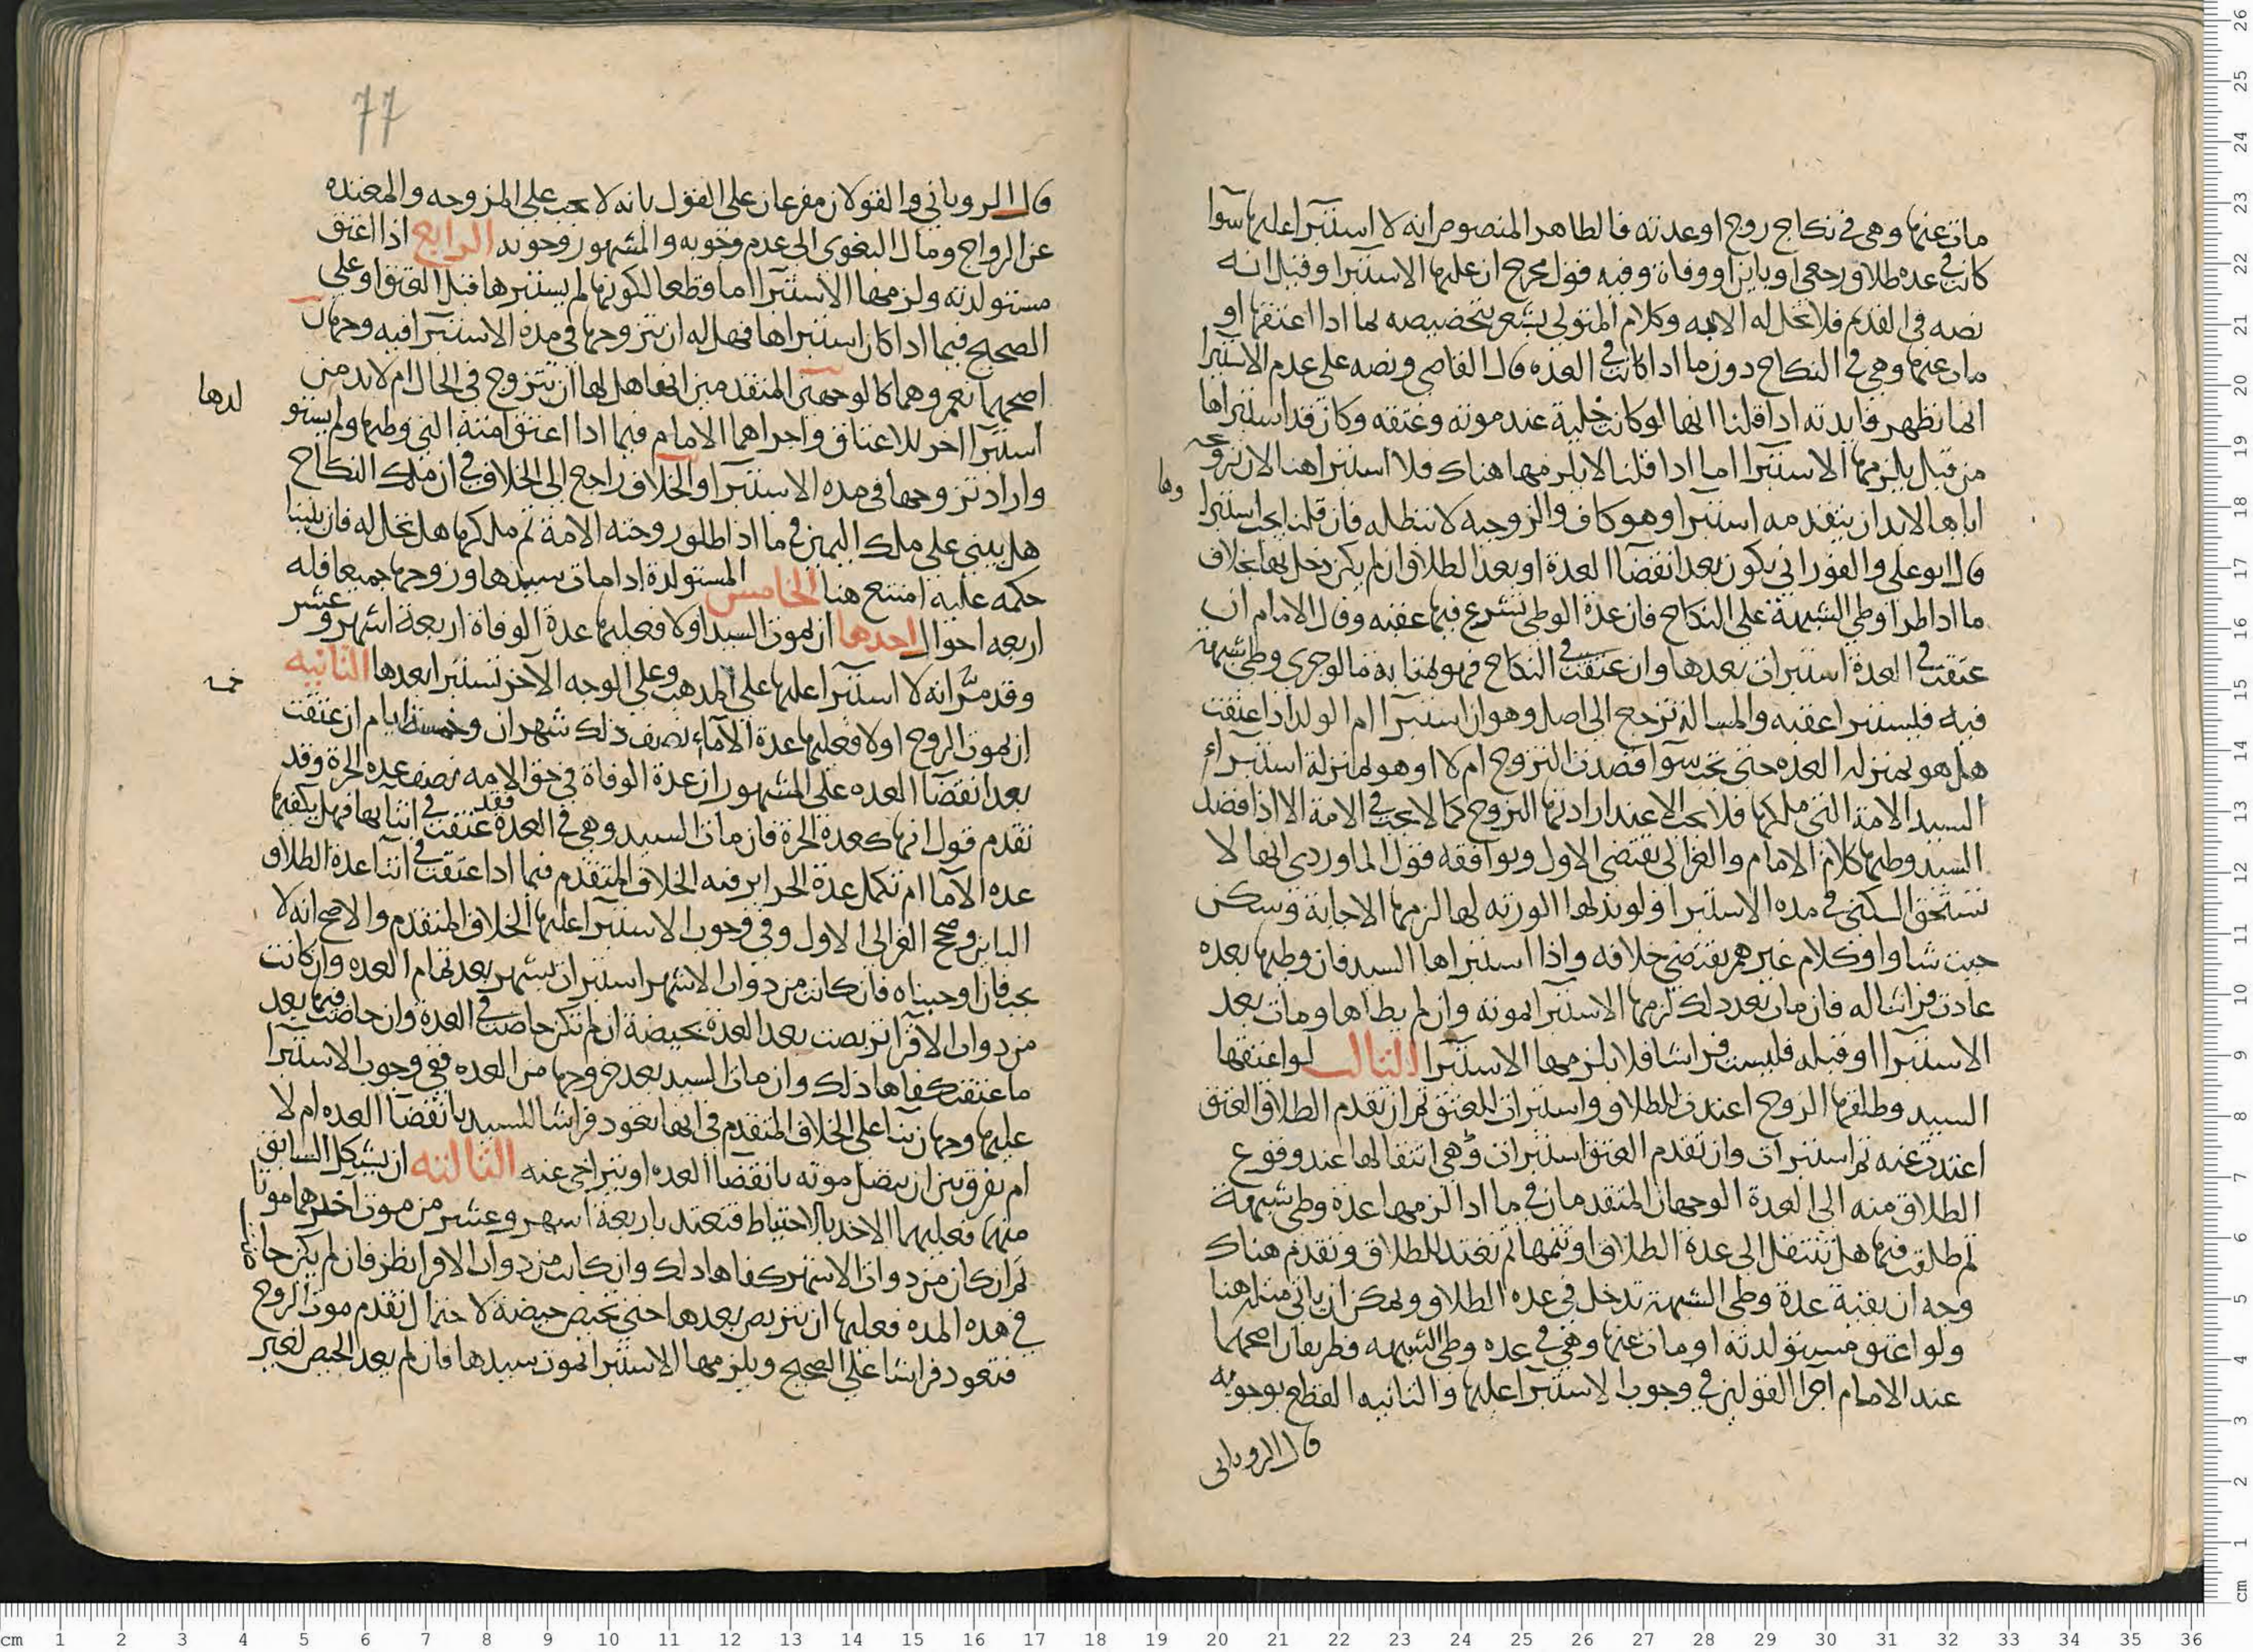 مات عنها وهي في نكاح زوج او عدته فالظاهر المنصوص انه لا استبرا عليها سوآ
كانت في عده طلاق رجعي او باين او وفاة وفيه قول مخرج ان عليها الاستبرا وقيل انه
نصه في القديم فلا تحل له الامه وكلام المتولي يشعر بتخصيصه بما اذا اعتقها او
مات عنها وهي في النكاح دون ما اذا كانت في العده قال القاضي ونصه على عدم الاستبرا
انما تظهر فايدته اذا قلنا انها لو كانت خلية عند موته وعتقه وكان قد استبراها
من قبل يلزمها الاستبرا اما اذا قلنا لا يلزمها هناك فلا استبرا هنا لان تزويجه
اياها لابد ان يتقدمه استبرا وهو كاف والزوجية لا تبطله فان قلنا يجب استبراوها
قال ابو علي والفوراني يكون بعد انقضآ العدة او بعد الطلاق ان لم يكن دخل بها بخلاف
ما اذا طرا وطي الشبهة على النكاح فان عدة الوطي تشرع فيها عقبه وقال الامام ان
عتقت في العدة استبرات بعدها وان عتقت في النكاح فهو بمثابة ما لو جرى وطي شبهة
فيه فلتستبرا عقبه والمسالة ترجع الى اصل وهو ان استبرآ ام الولد اذا عتقت
هل هو بمنزله العده حتى تجب سوآ قصدت التزوج ام لا او هو بمنزلة استبرآء
السيد الامة التي ملكها فلا يجب الا عند ارادتها التزوج كما لا يجب في الامة الا اذا قصد
السيد وطيها كلام الامام والغزالي يقتضي الاول ويوافقه قول الماوردي انها لا
تستحق السكنى في مده الاستبرا ولو بذلها الورثه لها لزمها الاجابة وتسكن
حيث شاوا وكلام غيرهم يقتضي خلافه واذا استبراها السيد فان وطيها بعده
عادت فراشا له فان مات بعد ذلك لزمها الاستبرا لموته وان لم يطاها ومات بعد
الاستبرآ او قبله فليست فراشا فلا يلزمها الاستبرا الثالث لو اعتقها
السيد وطلقها الزوج اعتدت للطلاق واستبرات للعتق ثم ان تقدم الطلاق العتق
اعتدت عنه ثم استبرات وان تقدم العتق استبرات وفي انتقالها عند وقوع
الطلاق منه الى العدة الوجهان المتقدمان في ما اذا لزمها عدة وطي شبهة
ثم طلقت فيها هل تنتقل الى عدة الطلاق او تتمها ثم تعتد للطلاق وتقدم هناك
وجه ان بقية عدة وطي الشبهة تدخل في عده الطلاق ويمكن ان ياتي مثله هنا
ولو اعتق مستولدته او مات عنها وهي في عده وطي الشبهه فطريقان اصحهما
عند الامام اجرا القولين في وجوب الاستبرآ عليها والثانيه القطع بوجوبه
قال الروياني
77
قال الروياني والقولان مفرعان على القول بانه لا يجب على المزوجه والمعتده
عن الزواج ومال البغوي الى عدم وجوبه والمشهور وجوبه الرابع اذا اعتق
مستولدته ولزمها الاستبرآ اما قطعا لكونها لم يستبرها قبل العتق او على
الصحيح فيما اذا كان استبراها فهل له ان يتزوجها في مدة الاستبرآ فيه وجهان
اصحهما نعم وهما كالوجهين المتقدمين انها هل لها ان تتزوج في الحال ام لابد من
استبرآ اخر للاعتاق واجراهما الامام فيما اذا اعتق امته التي وطيها ولم يستولدها
واراد تزوجها في مده الاستبرآ والخلاف راجع الى الخلاف في ان ملك النكاح
هل يبنى على ملك اليمين في ما اذا طلق زوجته الامة ثم ملكها هل تحل له فان بنينا
حكمه عليه امتنع هنا الخامس المستولدة اذا مات سيدها وزوجها جميعا فله
اربعه احوال احدها ان يموت السيد اولا فعليها عدة الوفاة اربعة اشهر وعشر
وقد مر انه لا استبرآ عليها على المذهب وعلى الوجه الآخر تستبرا بعدها الثانيه
ان يموت الزوج اولا فعليها عدة الآماء نصف ذلك شهران وخمسة ايام ان عتقت
بعد انقضآ العده على المشهور ان عدة الوفاة في حق الامه نصف عده الحرة وقد
تقدم قول انها كعدة الحرة فان مات السيد وهي في العدة فقد عتقت في اثنايها فهل يكفيها
عده الآما ام تكمل عدة الحراير فيه الخلاف المتقدم فيما اذا عتقت في اثنآ عدة الطلاق
الباين وصحح الغزالي الاول وفي وجوب الاستبرآ عليها الخلاف المتقدم والاصح انه لا
يجب فان اوجبناه فان كانت من ذوات الاشهر استبرات بشهر بعد تمام العده وان كانت
من ذوات الاقرآ تربصت بعد العدة بحيضة ان لم تكن حاضت في العدة وان حاضت فيها بعد
ما عتقت كفاها ذلك وان مات السيد بعد خروجها من العده ففي وجوب الاستبرآ
عليها وجهان بنآ على الخلاف المتقدم في انها تعود فراشا للسيد بانقضآ العده ام لا
ام يفرق بين ان يتصل موته بانقضآ العده او يتراخى عنه الثالثه ان يشكل السابق
منهما فعليها الاخذ بالاحتياط فتعتد باربعة اشهر وعشر من موت آخرهما موتا
ثم ان كان من ذوات الاشهر كفاها ذلك وان كانت من ذوات الاقرا نظر فان لم يكن حاضت
في هذه المده فعليها ان تتربص بعدها حتى تحيض حيضة لاحتمال تقدم موت الزوج
فتعود فراشا على الصحيح ويلزمها الاستبرا لموت سيدها فان لم يعد الحيض لغير